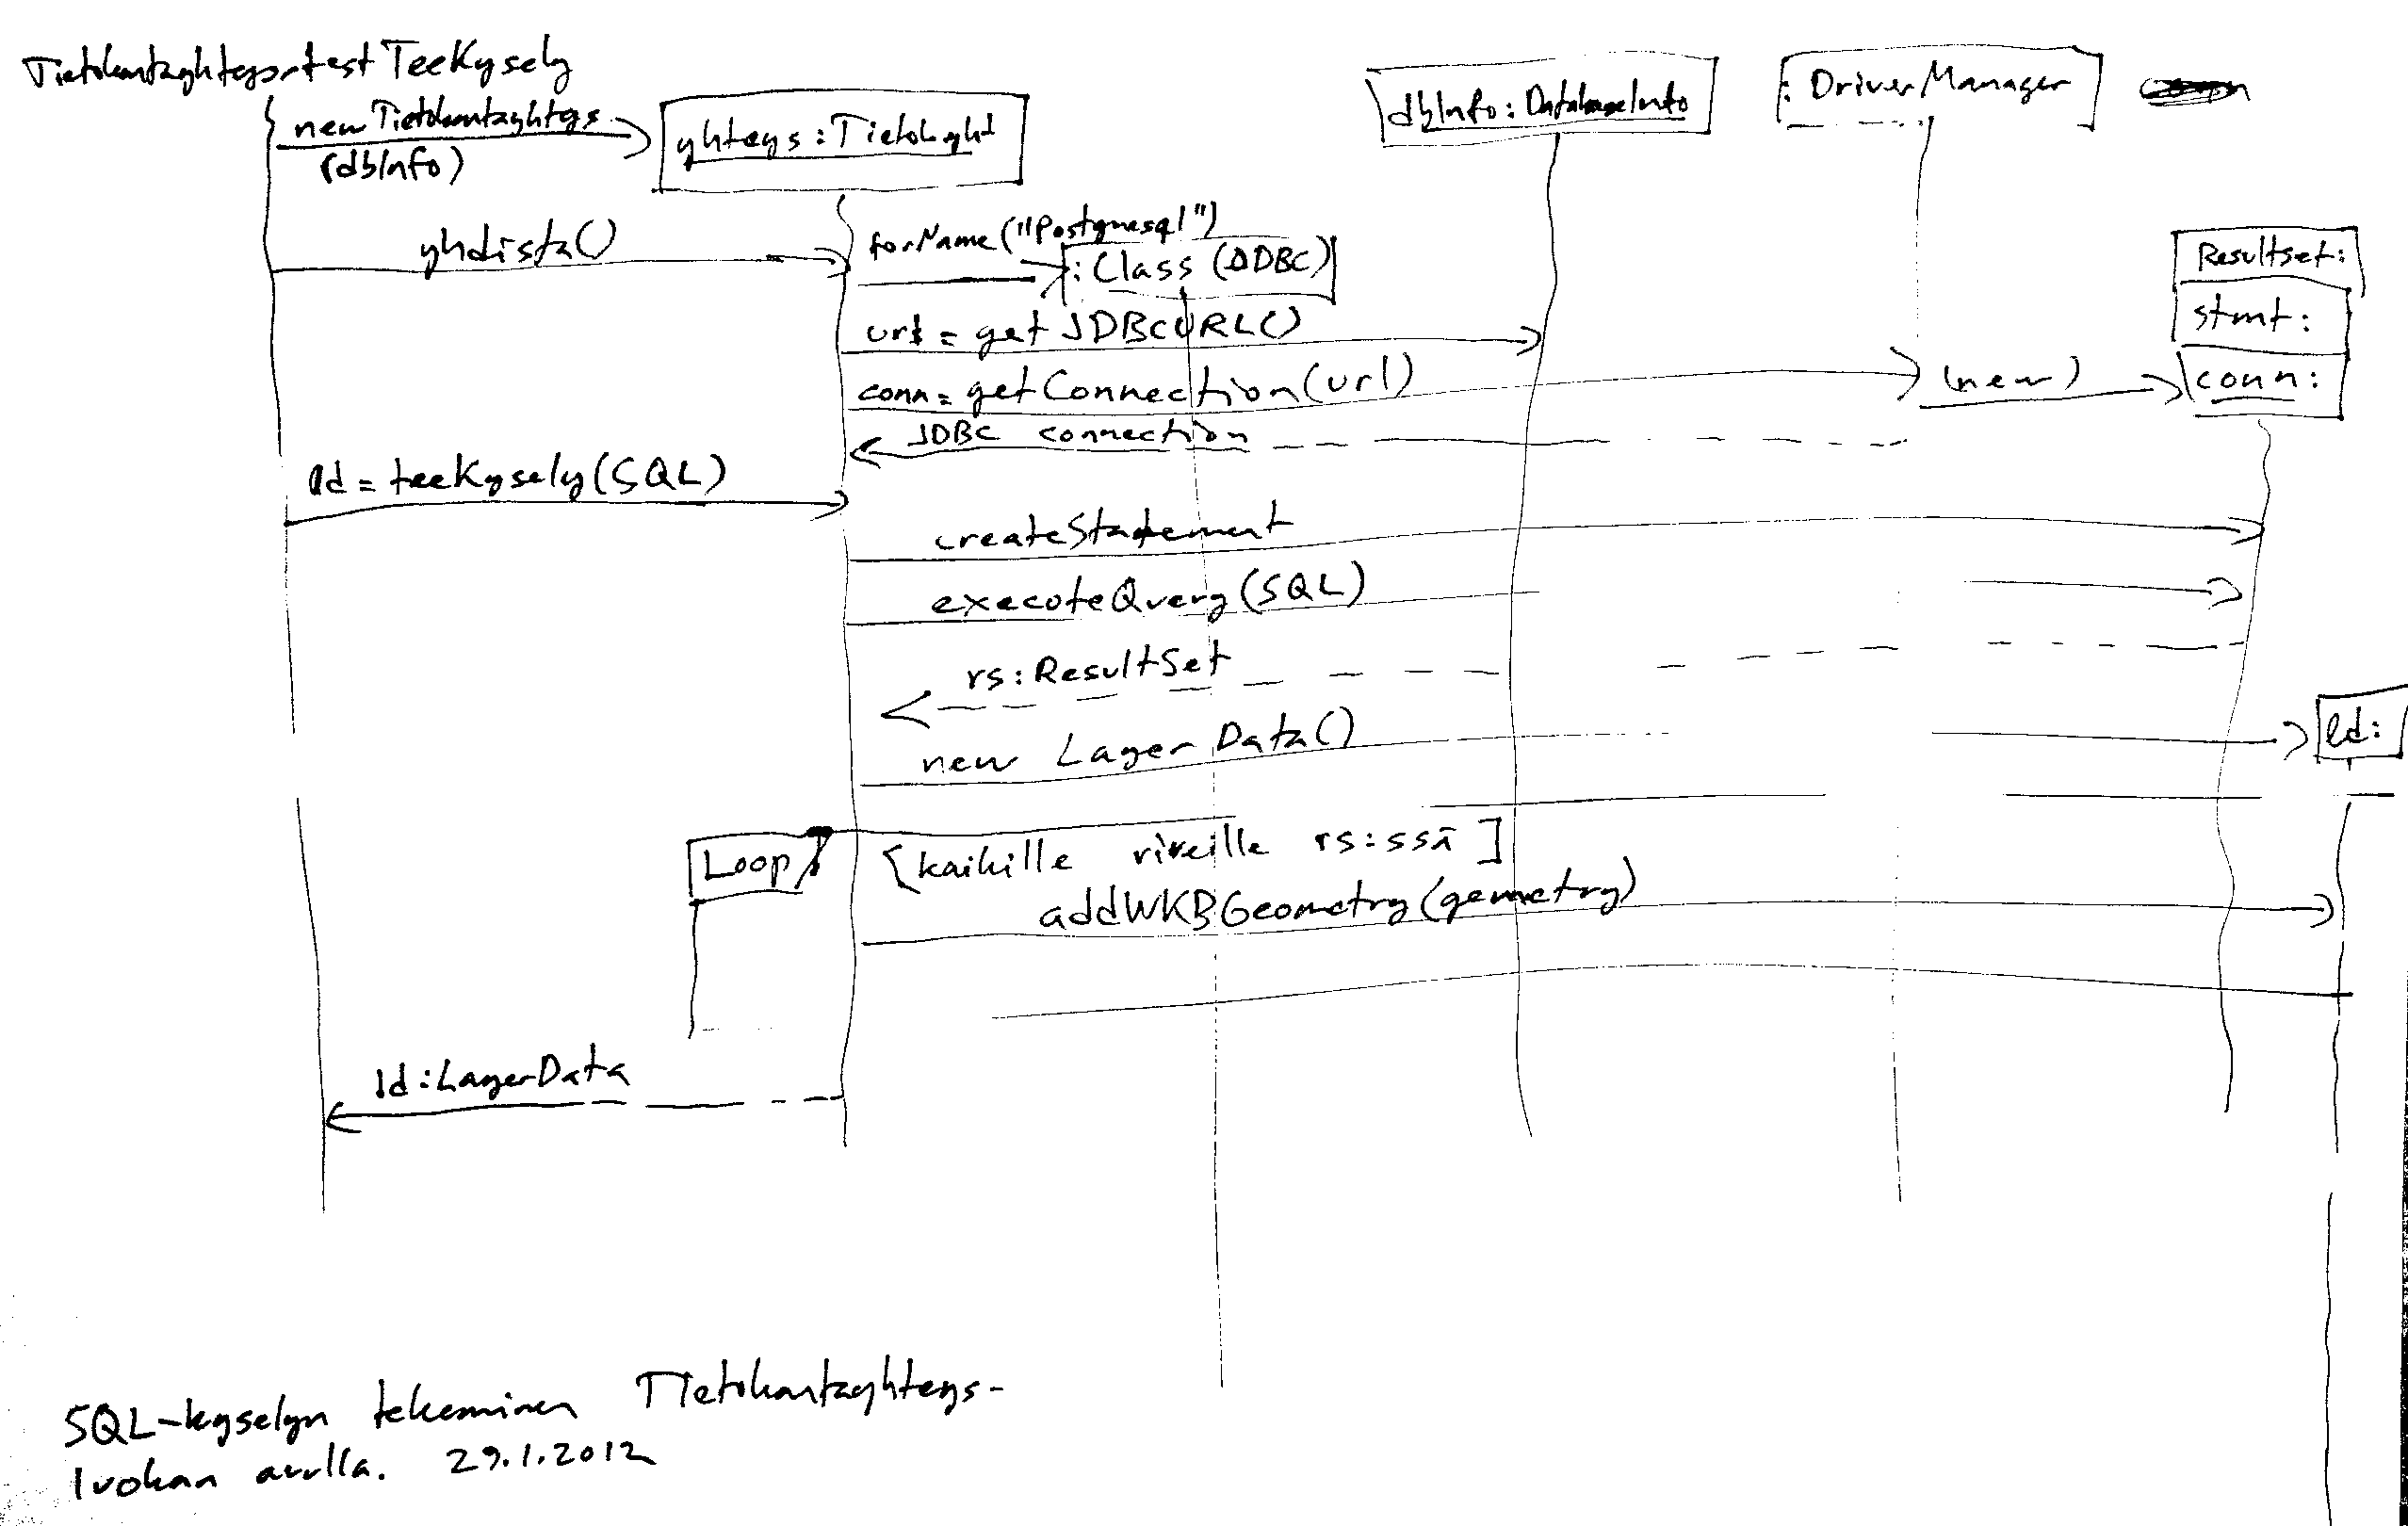 Tietokantayhteys.testTeeKysely
dbInfo:DatabaseInfo
:DriverManager
new Tietokantayhteys
(dbInfo)
yhteys:Tietok.yht
yhdista()
forName("Postgresql")
:Class (ODBC)
Resultset:
stmt:
conn:
url = getJDBCURL()
conn = getConnection(url)
(new)
JDBC connection
ld = teeKysely(SQL)
createStatement
executeQuery(SQL)
rs:ResultSet
new LayerData()
ld:
Loop
[kaikille riveille rs:ssä]
addWKBGeometry(gemetry)
ld:LayerData
SQL-kyselyn tekeminen Tietokantayhteys-
luokan avulla. 29.1.2012